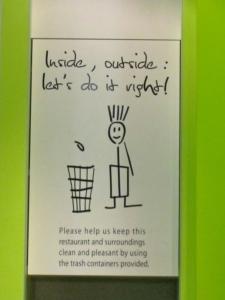 Inside, outside:
let's do it right!
Please help us keep this
restaurant and surroundings
clean and pleasant by using
the trash containers provided.